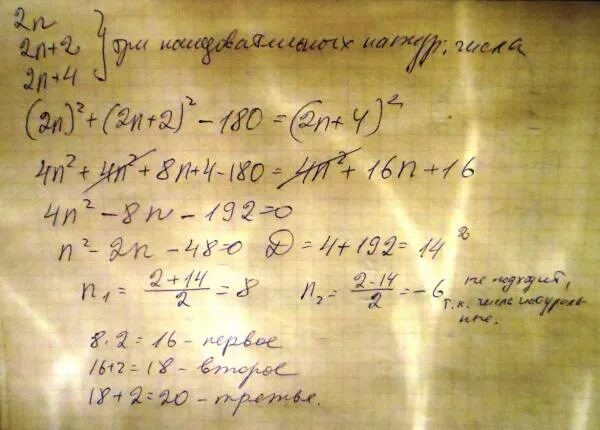 2n
2n+2 } три последовательных натур. числа
2n+4
(2n)² + (2n+2)² - 180 = (2n+4)²
4n² + 4n² + 8n + 4 - 180 = 4n² + 16n + 16
4n² - 8n - 192 = 0
n² - 2n - 48 = 0 D = 4 + 192 = 14²
n₁ = (2+14)/2 = 8 n₂ = (2-14)/2 = -6 не подходит,
т.к. числа натураль
ные.
8·2=16 - первое
16+2=18 - второе
18+2=20 - третье.